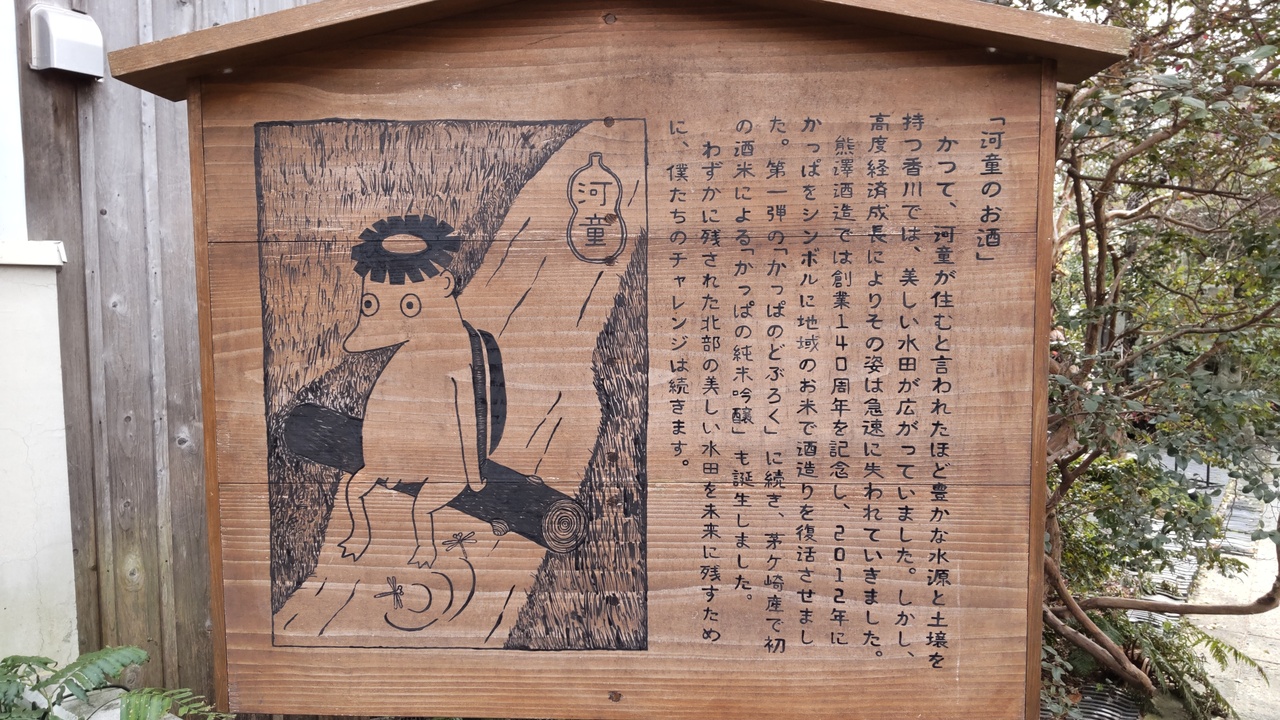 「河童のお酒」
かつて、河童が住むと言われたほど豊かな水源と土壌を
持つ香川では、美しい水田が広がっていました。しかし、
高度経済成長によりその姿は急速に失われていきました。
熊澤酒造では創業140周年を記念し、2012年に
かっぱをシンボルに地域のお米で酒造りを復活させまし
た。第一弾の「かっぱのどぶろく」に続き、茅ケ崎産で初
の酒米による「かっぱの純米吟醸」も誕生しました。
わずかに残された北部の美しい水田を未来に残すため
に、僕たちのチャレンジは続きます。
河童